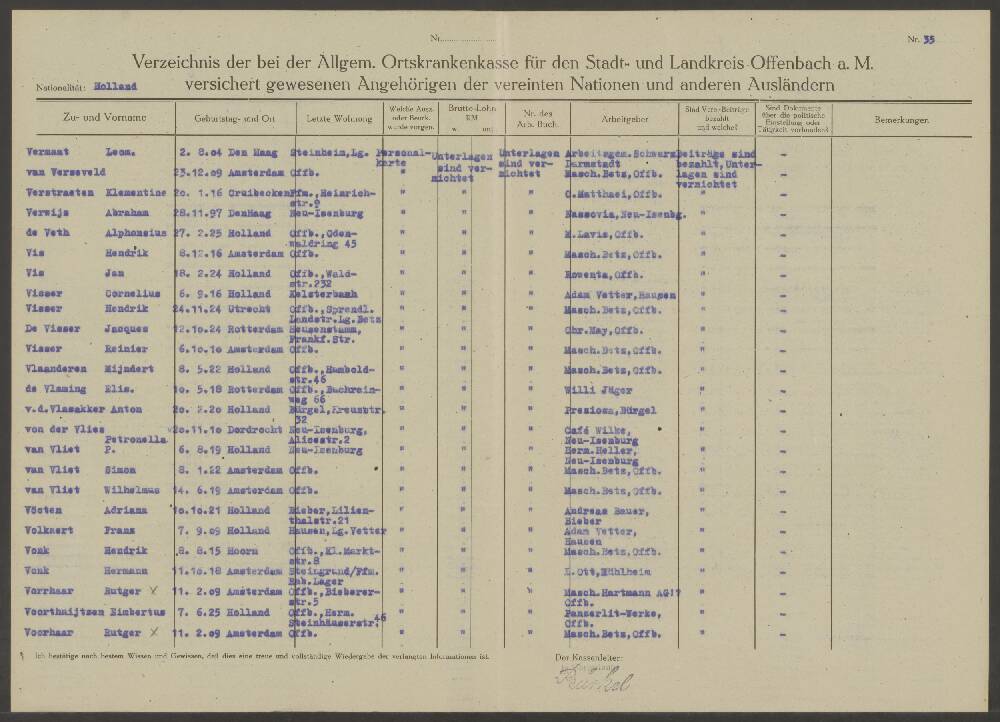 Nr.
Nr. 35
Verzeichnis der bei der Allgem. Ortskrankenkasse für den Stadt- und Landkreis Offenbach a. M.
Nationalität: Holland versichert gewesenen Angehörigen der vereinten Nationen und anderen Ausländern
Zu- und Vorname Geburtstag- und Ort Letzte Wohnung Welche Ausz. oder Beurk. wurde vorgen. Brutto-Lohn RM Nr. des Arb. Buch. Arbeitgeber Sind Vers-Beiträge bezahlt und welche? Sind Dokumente über die politische Einstellung oder Tätigkeit vorhanden? Bemerkungen
Vermaat Leom. 2. 8.04 Den Haag Steinheim, Lg. Personal- Unterlagen Unterlagen Arbeitsgem. Schwarz Beiträge sind -
karte sind ver- sind ver- Darmstadt bezahlt, Unter-
van Verseveld 23.12.09 Amsterdam Offb. " nichtet nichtet Masch. Betz, Offb. lagen sind -
vernichtet
Verstraeten Klementine 20. 1.16 Cruibecken Ffm., Heinrich- " " " C. Matthaei, Offb. " -
str.9
Verwijs Abraham 28.11.97 DenHaag Neu-Isenburg " " " Nassovia, Neu-Isenbg. " -
de Veth Alphonsius 27. 2.25 Holland Offb., Oden- " " " M. Lavis, Offb. " -
waldring 45
Vis Hendrik 8.12.16 Amsterdam Offb. " " " Masch. Betz, Offb. " -
Vis Jan 18. 2.24 Holland Offb., Wald- " " " Rowenta, Offb. " -
str.232
Visser Cornelius 6. 9.16 Holland Kelsterbach " " " Adam Vetter, Hausen " -
Visser Hendrik 24.11.24 Utrecht Offb., Sprendl. " " " Masch. Betz, Offb. " -
Landstr. Lg. Betz
De Visser Jacques 12.10.24 Rotterdam Heusenstamm, " " " Chr. May, Offb. " -
Frankf. Str.
Visser Reinier 6.10.10 Amsterdam Offb. " " " Masch. Betz, Offb. " -
Vlaanderen Mijndert 8. 5.22 Holland Offb., Humbold- " " " Masch. Betz, Offb. " -
str.46
de Vlaming Elis. 10. 5.18 Rotterdam Offb., Buchrain- " " " Willi Jäger " -
weg 66
v.d. Vlasakker Anton 20. 2.20 Holland Bürgel, Kreuzstr. " " " Preziosa, Bürgel " -
32
von der Vlies 20.11.10 Dordrecht Neu-Isenburg, " " " Café Wilke, " -
Petronella Alicestr.2 Neu-Isenburg
van Vliet P. 6. 8.19 Holland Neu-Isenburg " " " Herm. Heller, " -
Neu-Isenburg
van Vliet Simon 8. 1.22 Amsterdam Offb. " " " Masch. Betz, Offb. " -
van Vliet Wilhelmus 14. 6.19 Amsterdam Offb. " " " Masch. Betz, Offb. " -
Vöcten Adriana 10.10.21 Holland Bieber, Lilien- " " " Andreas Bauer, " -
thalstr.21 Bieber
Volkaert Frans 7. 9.09 Holland Hausen, Lg. Vetter " " " Adam Vetter, " -
Hausen
Vonk Hendrik 8. 8.15 Hoorn Offb., Kl. Markt- " " " Masch. Betz, Offb. " -
str.8
Vonk Hermann 11.10.18 Amsterdam Steingrund/Ffm. " " " L. Ott, Mühlheim " -
Rab. Lager
Vorrhaar Rutger X 11. 2.09 Amsterdam Offb., Bieberer- " " " Masch. Hartmann AG!? " -
str.5 Offb.
Voorthuijtzen Eimbertus 7. 6.25 Holland Offb., Herm. " " " Panzerlit-Werke, " -
Steinhäuserstr. 46 Offb.
Voorhaar Rutger X 11. 2.09 Amsterdam Offb. " " " Masch. Betz, Offb. " -
Ich bestätige nach bestem Wissen und Gewissen, daß dies eine treue und vollständige Wiedergabe der verlangten Informationen ist.
Der Kassenleiter: